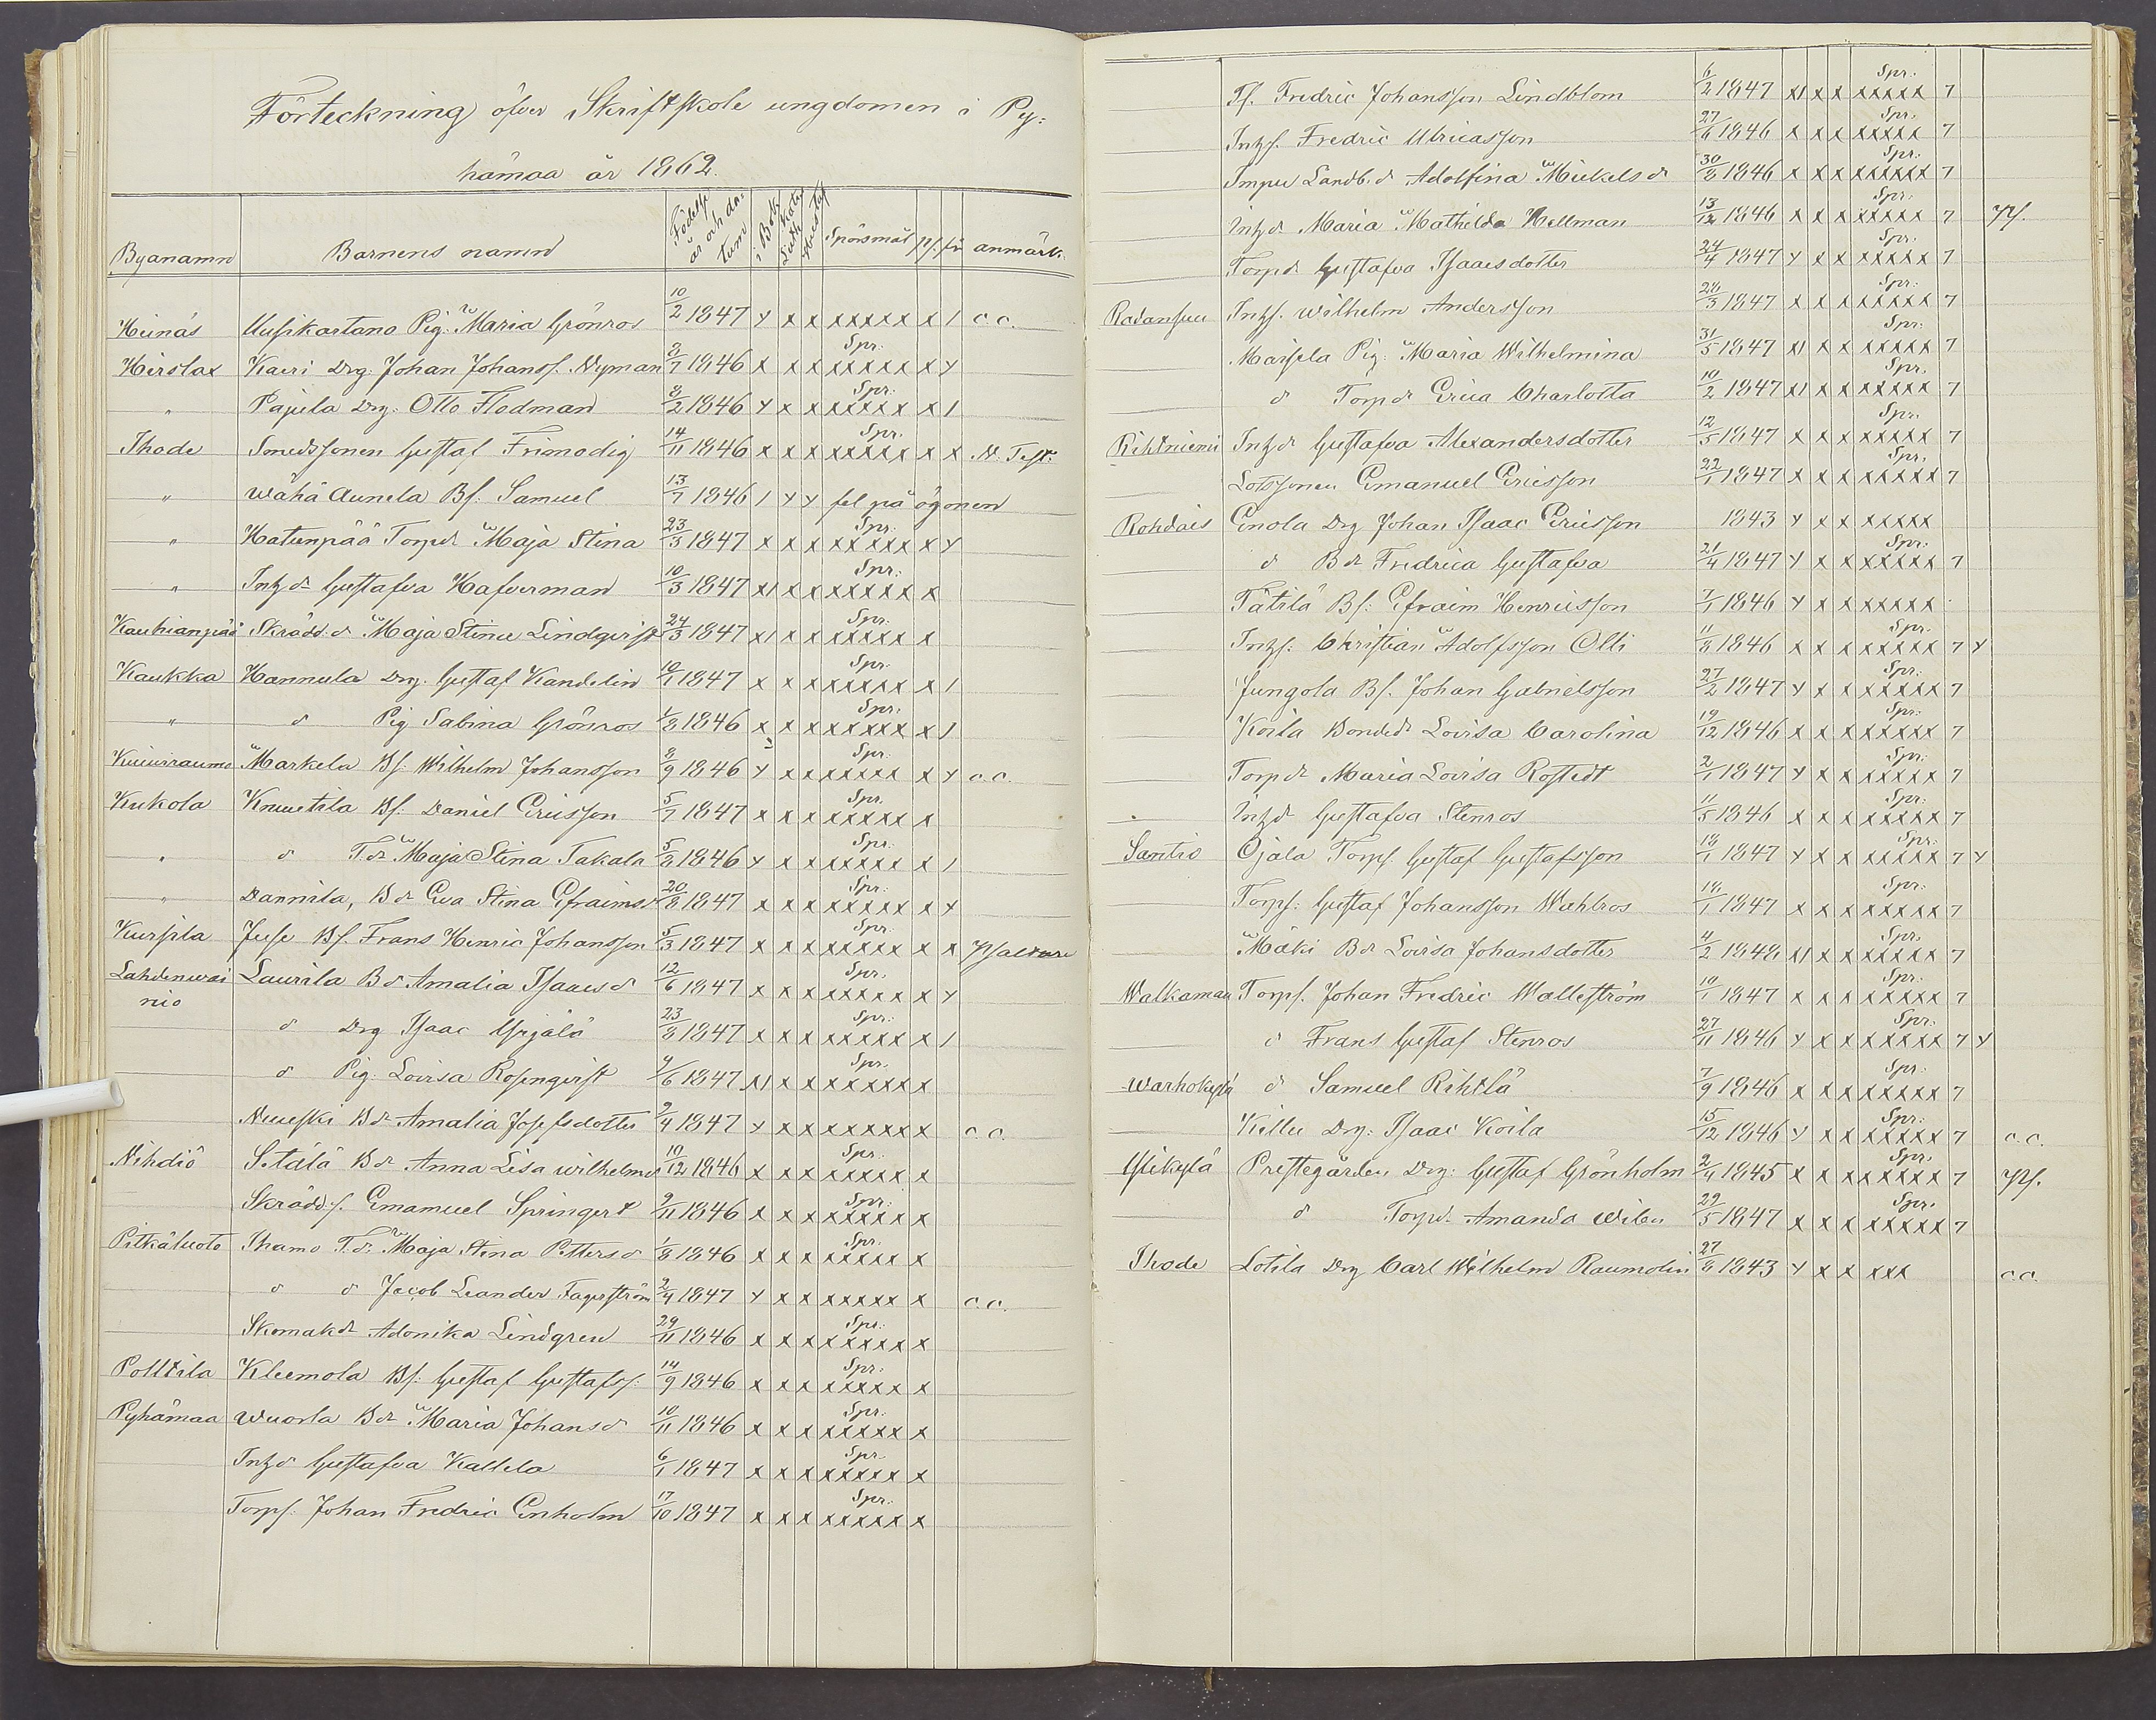 Förteckning öfver Skriftskole ungdomen i Py-
hämaa år 1862.
Byanamn Barnens namn Födelse år och datum i Bok Luth. Spörsmål anmärk.
Heinäs Uusikartano Pig. Maria Grönros 10/2 1847 y x x xxxxx x 1 c.c.
Spr.
Hirslax Kaeri Drg. Johan Johanss. Nyman 8/7 1846 x x x xxxxx x y
Spr.
" Pajula Drg. Otto Flodman 8/2 1846 y x x xxxxx x 1
Spr.
Ihode Smedssonen Gustaf Frimodig 14/11 1846 x x x xxxxx x x N. Test.
" Wähä Aunela Bs. Samuel 13/7 1846 1 y y fel på ögonen
Spr.
" Hatunpää Torpdr Maja Stina 23/3 1847 x x x xxxxx x y
Spr.
" Inhdr Gustafva Hafverman 10/3 1847 x1 x x xxxxx x
Spr.
Kauhianpää Skrädd.d Maja Stina Lindqvist 24/3 1847 x1 x x xxxxx x
Spr.
Kaukka Hannula Drg. Gustaf Kandelin 10/1 1847 x x x xxxxx x 1
Spr.
" d Pig Sabina Grönros 1/8 1846 x x x xxxxx x 1
Spr.
Kuivirauma Markela Bs. Wilhelm Johansson 8/9 1846 y x x xxxxx x y c.c.
Spr.
Kukola Knuutila Bs. Daniel Ericsson 5/7 1847 x x x xxxxx x
Spr.
" d T.dr Maja Stina Takala 5/8 1846 y x x xxxxx x 1
Spr.
" Dannila, B dr Eva Stina Efraimsd 20/8 1847 x x x xxxxx x y
Spr.
Kursila Juse Bs. Frans Henric Johansson 5/3 1847 x x x xxxxx x x Psaltare
Spr.
Lahdenwai Laurila B d Amalia Isaacsd 12/6 1847 x x x xxxxx x y
nio
Spr.
d Drg Isaac Yrjälä 23/8 1847 x x x xxxxx x 1
Spr.
d Pig. Lovisa Rosenqvist 4/6 1847 x1 x x xxxxx x
Nuuski B dr Amalia Josefsdotter 9/4 1847 y x x xxxxx x c.c.
Spr.
Nihdiö Sitälä B dr Anna Lisa Wilhelmsd 10/12 1846 x x x xxxxx x
Spr.
Skrädd.s. Emanuel Springert 9/11 1846 x x x xxxxx x
Spr.
Pitkäluoto Ihamo T.dr Maja Stina Pettersd 1/8 1846 x x x xxxxx x
d d Jacob Leander Fagerström 2/4 1847 y x x xxxxx x c.c.
Spr.
Skomakdr Adonika Lindgren 29/11 1846 x x x xxxxx x
Spr.
Polttila Kleemola Bs. Gustaf Gustafss. 14/9 1846 x x x xxxxx x
Spr.
Pyhämaa Wuorla B dr Maria Johansd 10/11 1846 x x x xxxxx x
Spr.
Inhd Gustafva Kallela 6/1 1847 x x x xxxxx x
Spr.
Torps. Johan Fredric Enholm 17/10 1847 x x x xxxxx x
Spr.
Ts. Fredric Johansson Lindblom 6/2 1847 x1 x x xxxxx 7
Spr.
Inhs. Fredric Ulricasson 27/6 1846 x x x xxxxx 7
Spr.
Landb.d Adolfina Mickelsd 30/8 1846 x x x xxxxx 7
Spr.
Inhd Maria Mathilda Hellman 13/12 1846 x x x xxxxx 7 Ps.
Spr.
Torpd. Gustafva Isaacsdotter 24/4 1847 y x x xxxxx 7
Spr.
Radansuu Inhs. Wilhelm Andersson 28/3 1847 x x x xxxxx 7
Spr.
Maisela Pig. Maria Wilhelmina 31/5 1847 x1 x x xxxxx 7
Spr.
d Torpdr Erica Charlotta 10/2 1847 x1 x x xxxxx 7
Spr.
Rihtniemi Inhdr Gustafva Alexandersdotter 12/5 1847 x x x xxxxx 7
Spr.
Lotssonen Emanuel Ericsson 22/1 1847 x x x xxxxx 7
Rohdais Enola Drg Johan Isaac Ericsson 1843 y x x xxxxx
Spr.
d B dr Fredrica Gustafva 21/4 1847 y x x xxxxx 7
Tätilä Bs. Efraim Henricsson 7/1 1846 y x x xxxxx
Spr.
Inhs. Christian Adolfsson Olli 11/8 1846 x x x xxxxx 7 y
Spr.
Jungola Bs. Johan Gabrielsson 27/2 1847 y x x xxxxx 7
Spr.
Koila Bondedr Lovisa Carolina 19/12 1846 x x x xxxxx 7
Spr.
Torpdr Maria Lovisa Rostedt 2/1 1847 y x x xxxxx 7
Spr.
Inhd Gustafva Stenros 11/5 1846 x x x xxxxx 7
Spr.
Santio Ojala Torps. Gustaf Gustafsson 18/1 1847 y x x xxxxx 7 y
Spr.
Torps. Gustaf Johansson Wahlros 18/1 1847 x x x xxxxx 7
Spr.
Mäki B dr Lovisa Johansdotter 4/2 1848 x1 x x xxxxx 7
Spr.
Walkamaa Torps. Johan Fredric Wallström 10/1 1847 x x x xxxxx 7
Spr.
d Frans Gustaf Stenros 27/11 1846 y x x xxxxx 7 y
Spr.
Warhokylä d Samuel Rihtlä 7/9 1846 x x x xxxxx 7
Spr.
Killu Drg. Isaac Koila 15/12 1846 y x x xxxxx 7 c.c.
Spr.
Ylikylä Prestegården Drg. Gustaf Grönholm 2/4 1845 x x x xxxxx 7 Ps.
Spr.
d Torpd. Amanda Wilen 29/5 1847 x x x xxxxx 7
Ihode Lotila Drg Carl Wilhelm Raumolin 27/8 1843 y x x xxx c.c.